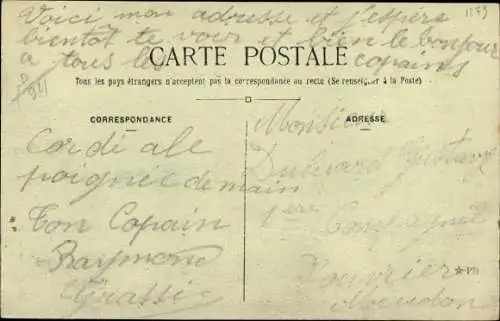 Voici mon adresse et j'espère
bientôt te voir et bien le bonjour
a tous les copains
CARTE POSTALE
Tous les pays étrangers n'acceptent pas la correspondance au recto (Se renseigner à la Poste)
CORRESPONDANCE
Cordi ale
poignée de main
Ton Copain
Raymond
ADRESSE
Monsieur
Gustave
1ère Compagnie
PB